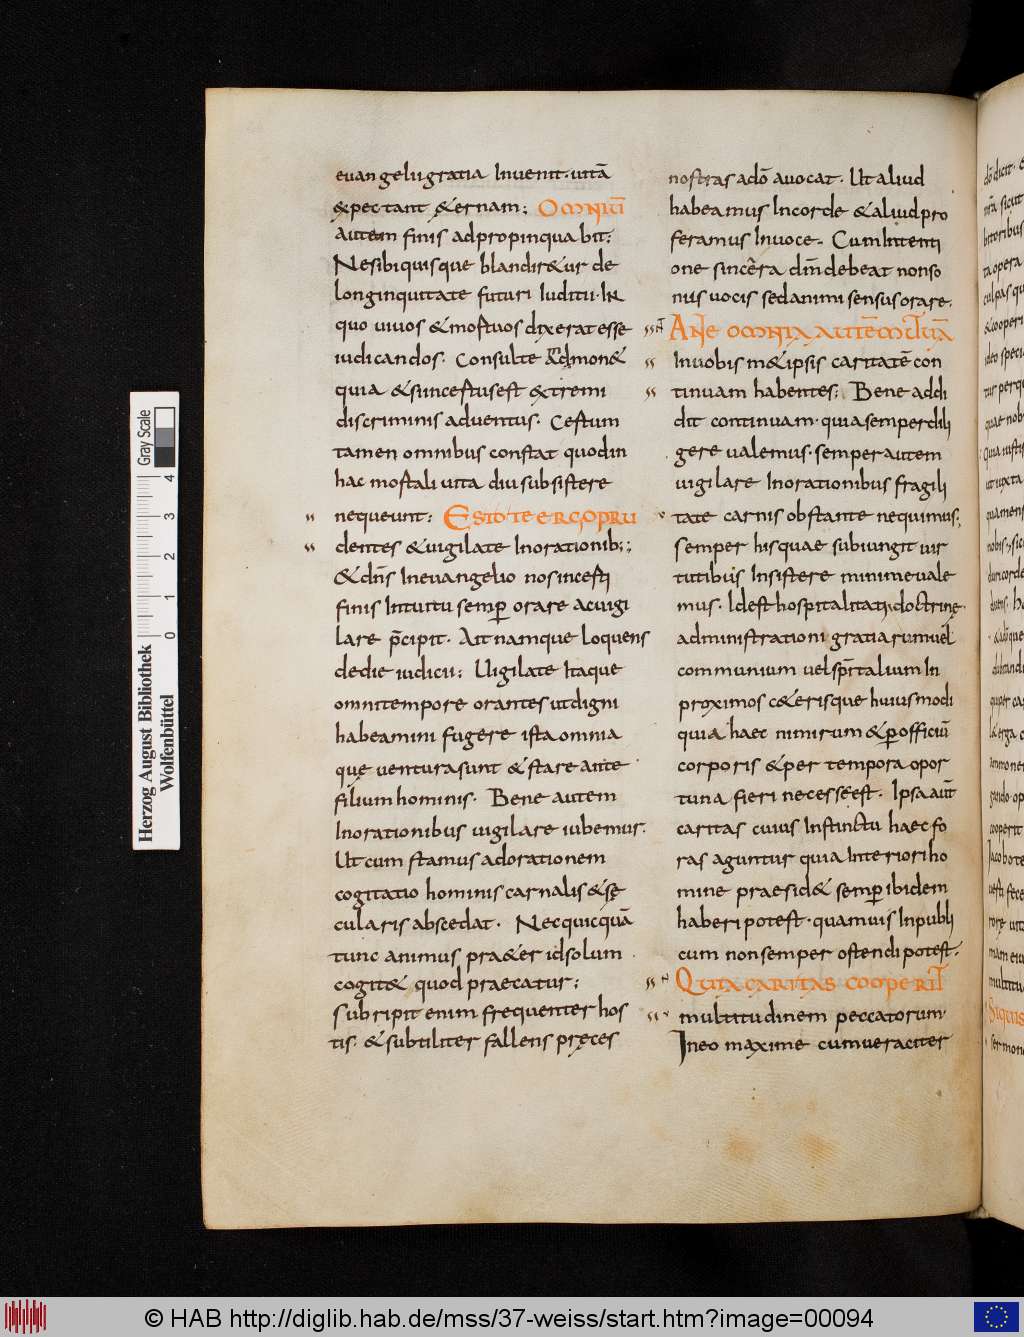 euangelii gratia Inuenit· uitā
expectant &ernam; Omniū
Autem finis adpropinquabit;
Ne sibi quisque blandir&ur de
longinquitate futuri Iuditii· IN
quo uiuos & mortuos dixerat esse
iudicandos· Consulte Admon&
quia & si incertus est extremi
discriminis aduentus· Certum
tamen omnibus constat quod in
hac mortali uita diu subsistere
nequeunt; Estote ergo pru
dentes & uigilate In orationib;;
& dn̄s In euangelio nos incerti
finis Intuitu semp orare ac uigi
lare p̄cipit· Ait namque loquens
de die iudicii; Uigilate Itaque
omni tempore orantes ut digni
habeamini fugere ista omnia
quę uentura sunt & stare ante
filium hominis· Bene autem
In orationibus uigilare iubemur·
Ut cum stamus ad orationem
cogitatio hominis carnalis & sę
cularis abscedat· Nec quicquā
tunc animus pra&er id solum
cogit& quod praecatur;
subripit enim frequenter hos
tis· & subtiliter fallens pręces
nostras a dō auocat· Ut aliud
habeamus In corde & aliud pro
feramus In uoce· Cum Intenti
one sincera dm̄ debeat non so
nus uocis sed animi sensus orare·
Ante omnia autē mutuā
In uobism&ipsis caritatē con
tinuam habentes; Bene addi
dit continuam· quia semper dili
gere ualemus· semper autem
uigilare In orationibus fragili
tate carnis obstante nequimus;
semper his quae subiungit uir
tutibus Insistere minime uale
mus· Id est hospitalitati, doctrinę
administrationi gratiarum uel
communium uel sp̄ritalium In
proximos c&erisque huiusmodi
quia haec nimirum & p officiū
corporis & per tempora opor
tuna fieri necesse est· Ipsa aut
caritas cuius Instinctu haec fo
ras aguntur quia Interiori ho
mine praesid& semp ibidem
haberi potest· quamuis In publi
cum non semper ostendi potest·
Quia caritas cooperit
multitudinem peccatorum·
In eo maxime cum ueraciter
Herzog August Bibliothek
Wolfenbüttel
Gray Scale
0 1 2 3 4
© HAB http://diglib.hab.de/mss/37-weiss/start.htm?image=00094